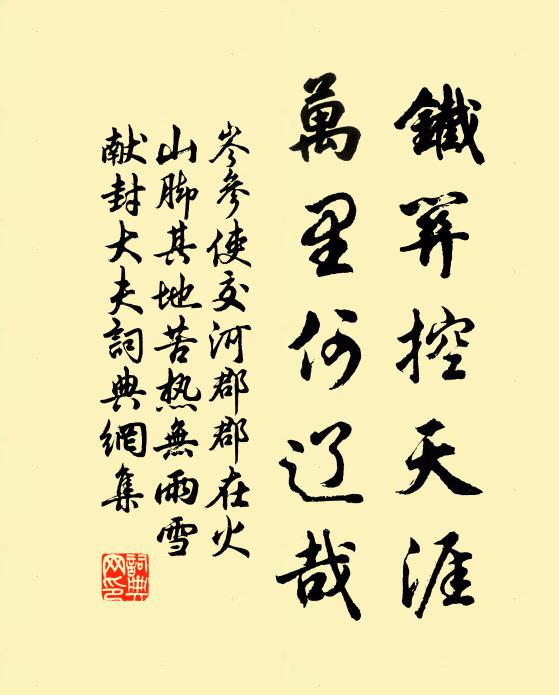 鐵关控天涯
萬里何辽哉
岑參使交河郡郡在火
山脚其地苦热無雨雪
献封大夫詞典網集
詞典
网印